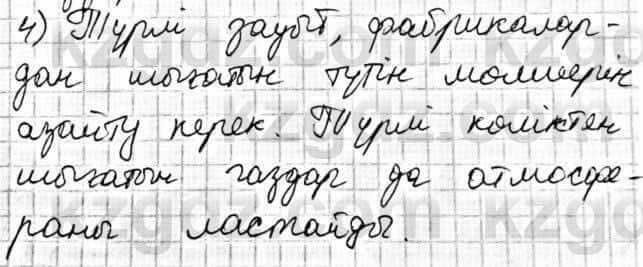 4) Түрлі зауыт, фабрикалар-
дан шығатын түтін мөлшерін
азайту керек. Түрлі көліктен
шығатын газдар да атмосфе-
раны ластайды.